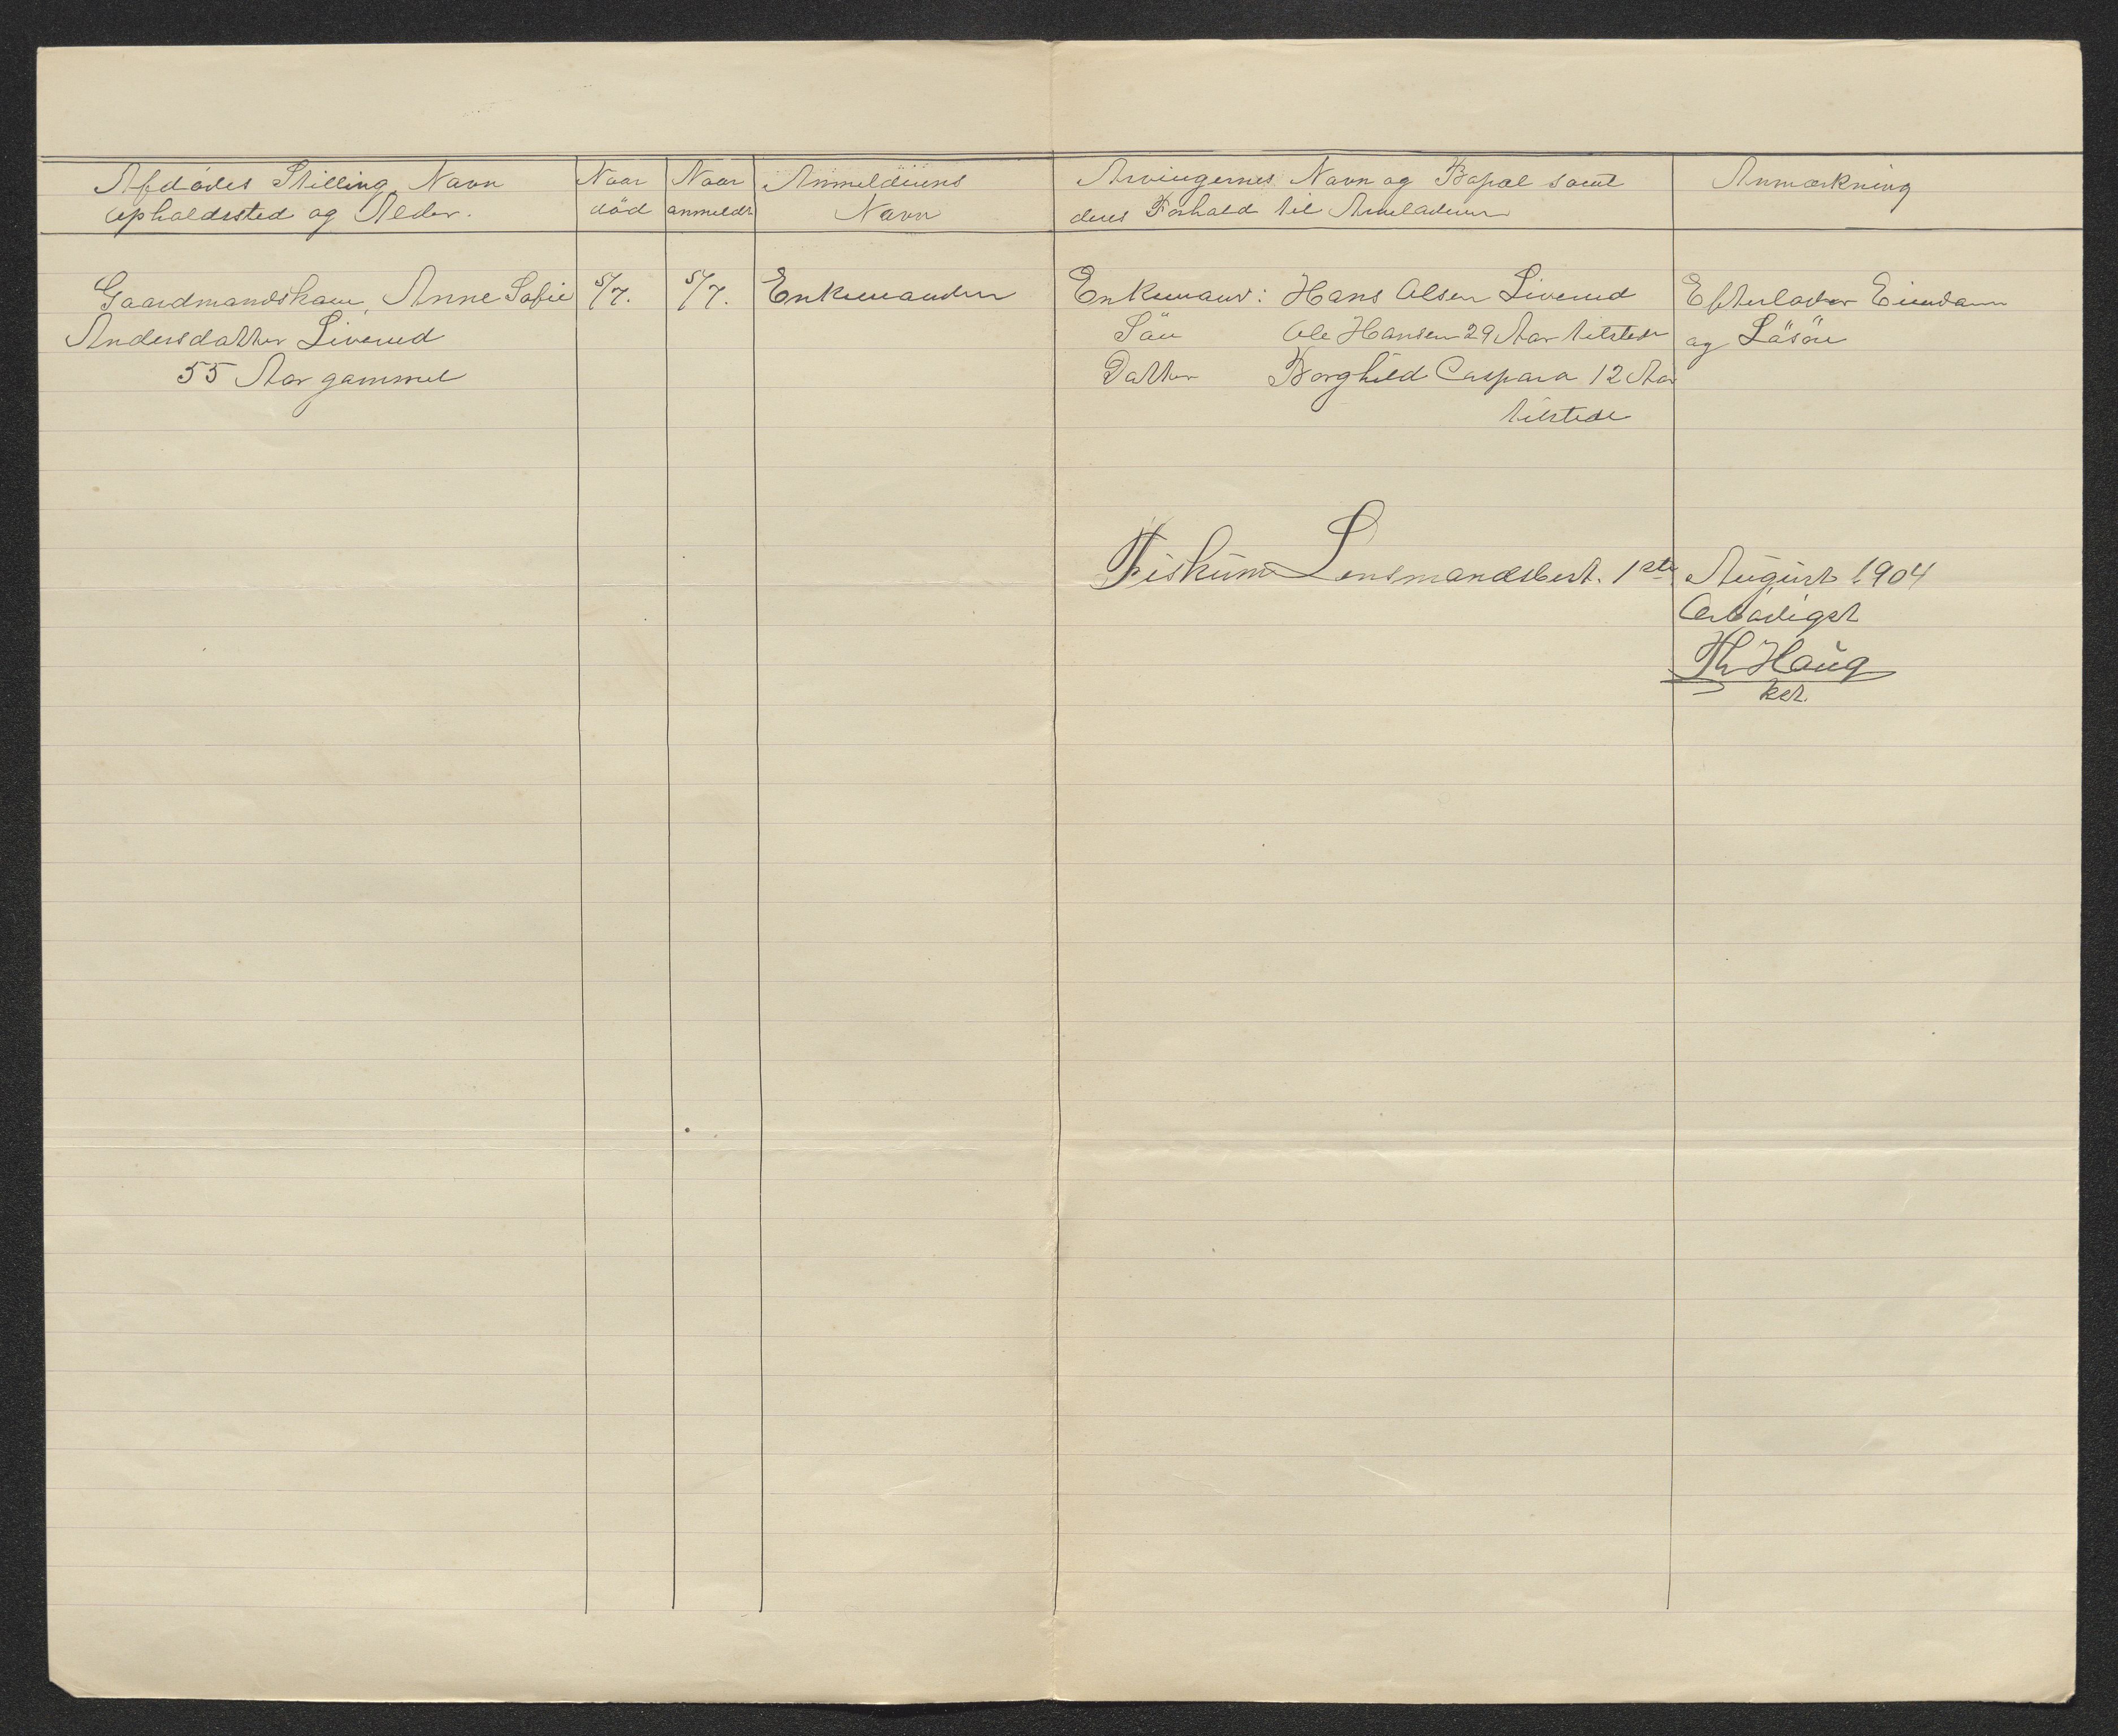 Afdødes Stilling, Navn
Opholdssted og Alder.
Naar
död
Naar
anmeldt
Anmelderens
Navn
Arvingernes Navn og Bopæl samt
deres Forhold til Arveladeren
Anmærkning
Gaardmandskone, Anne Sofie
Andersdatter Liverud
55 Aar gammel
5/7.
5/7.
Enkemanden
Enkemand: Hans Olsen Liverud
Sön Ole Hansen 29 Aar tilstede
Datter Borghild Caspara 12 Aar
tilstede
Efterlader Eiendom
og Lösöre
Fiskum Lensmandsbest. 1ste August 1904
Ærbødigst
Th Haug
kst.